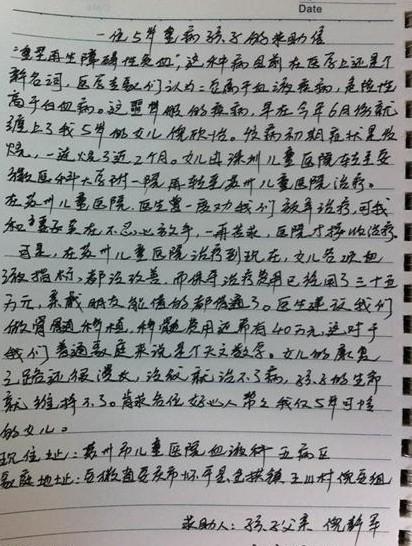 Date
一位5岁重病孩子的求助信
"重型再生障碍性贫血",这种病目前在医学上还是个
新名词,医学专家们认为:它属于血液疾病,危险性
高于白血病。这噩梦般的疾病,早在今年6月份就
缠上了我5岁的女儿倪欣怡。该病初期症状是发
烧,一连烧了近2个月。女儿由滁州儿童医院转至安
徽医科大学附一院再转至苏州儿童医院治疗。
在苏州儿童医院,医生曾一度劝我们放弃治疗,可我
和妻子实在不忍心放手,一再苦求,医院才接收治疗
可是,在苏州儿童医院治疗到现在,女儿各项血
液指标都没改善,而保守治疗费用已经用了三十五
万元,亲戚朋友能借的都借遍了。医生建议我们
做骨髓移植,移植费用还需有40万元,这对于
我们普通家庭来说是个天文数字。女儿的康复
之路还很漫长,没钱就治不了病,孩子的生命
就维持不了。肯求各位好心人帮帮我仅5岁可怜
的女儿。
现住址:苏州市儿童医院血液科五病区
家庭地址:安徽省安庆市怀宁县 拱镇王山村倪 组
求助人:孩子父亲 倪